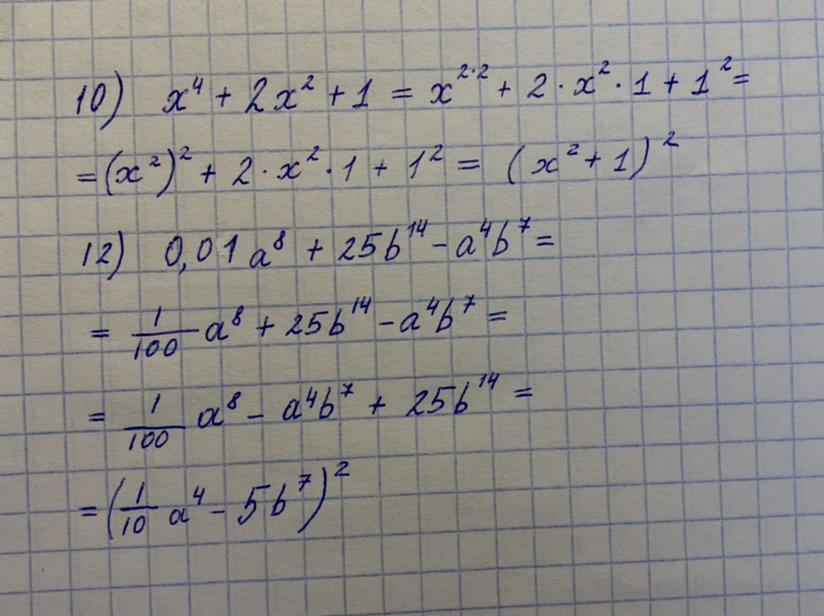 10) x⁴ + 2x² + 1 = x²·² + 2 · x² · 1 + 1² =
= (x²)² + 2 · x² · 1 + 1² = (x² + 1)²
12) 0,01a⁸ + 25b¹⁴ - a⁴b⁷ =
= 1/100 a⁸ + 25b¹⁴ - a⁴b⁷ =
= 1/100 a⁸ - a⁴b⁷ + 25b¹⁴ =
= (1/10 a⁴ - 5b⁷)²